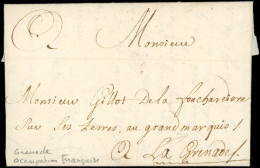 Monsieur
Monsieur Gillot De la fouchardiere
Sur Ses Terres, au grand marquis /.
A La Grenade /.
Grenade
occupation Française